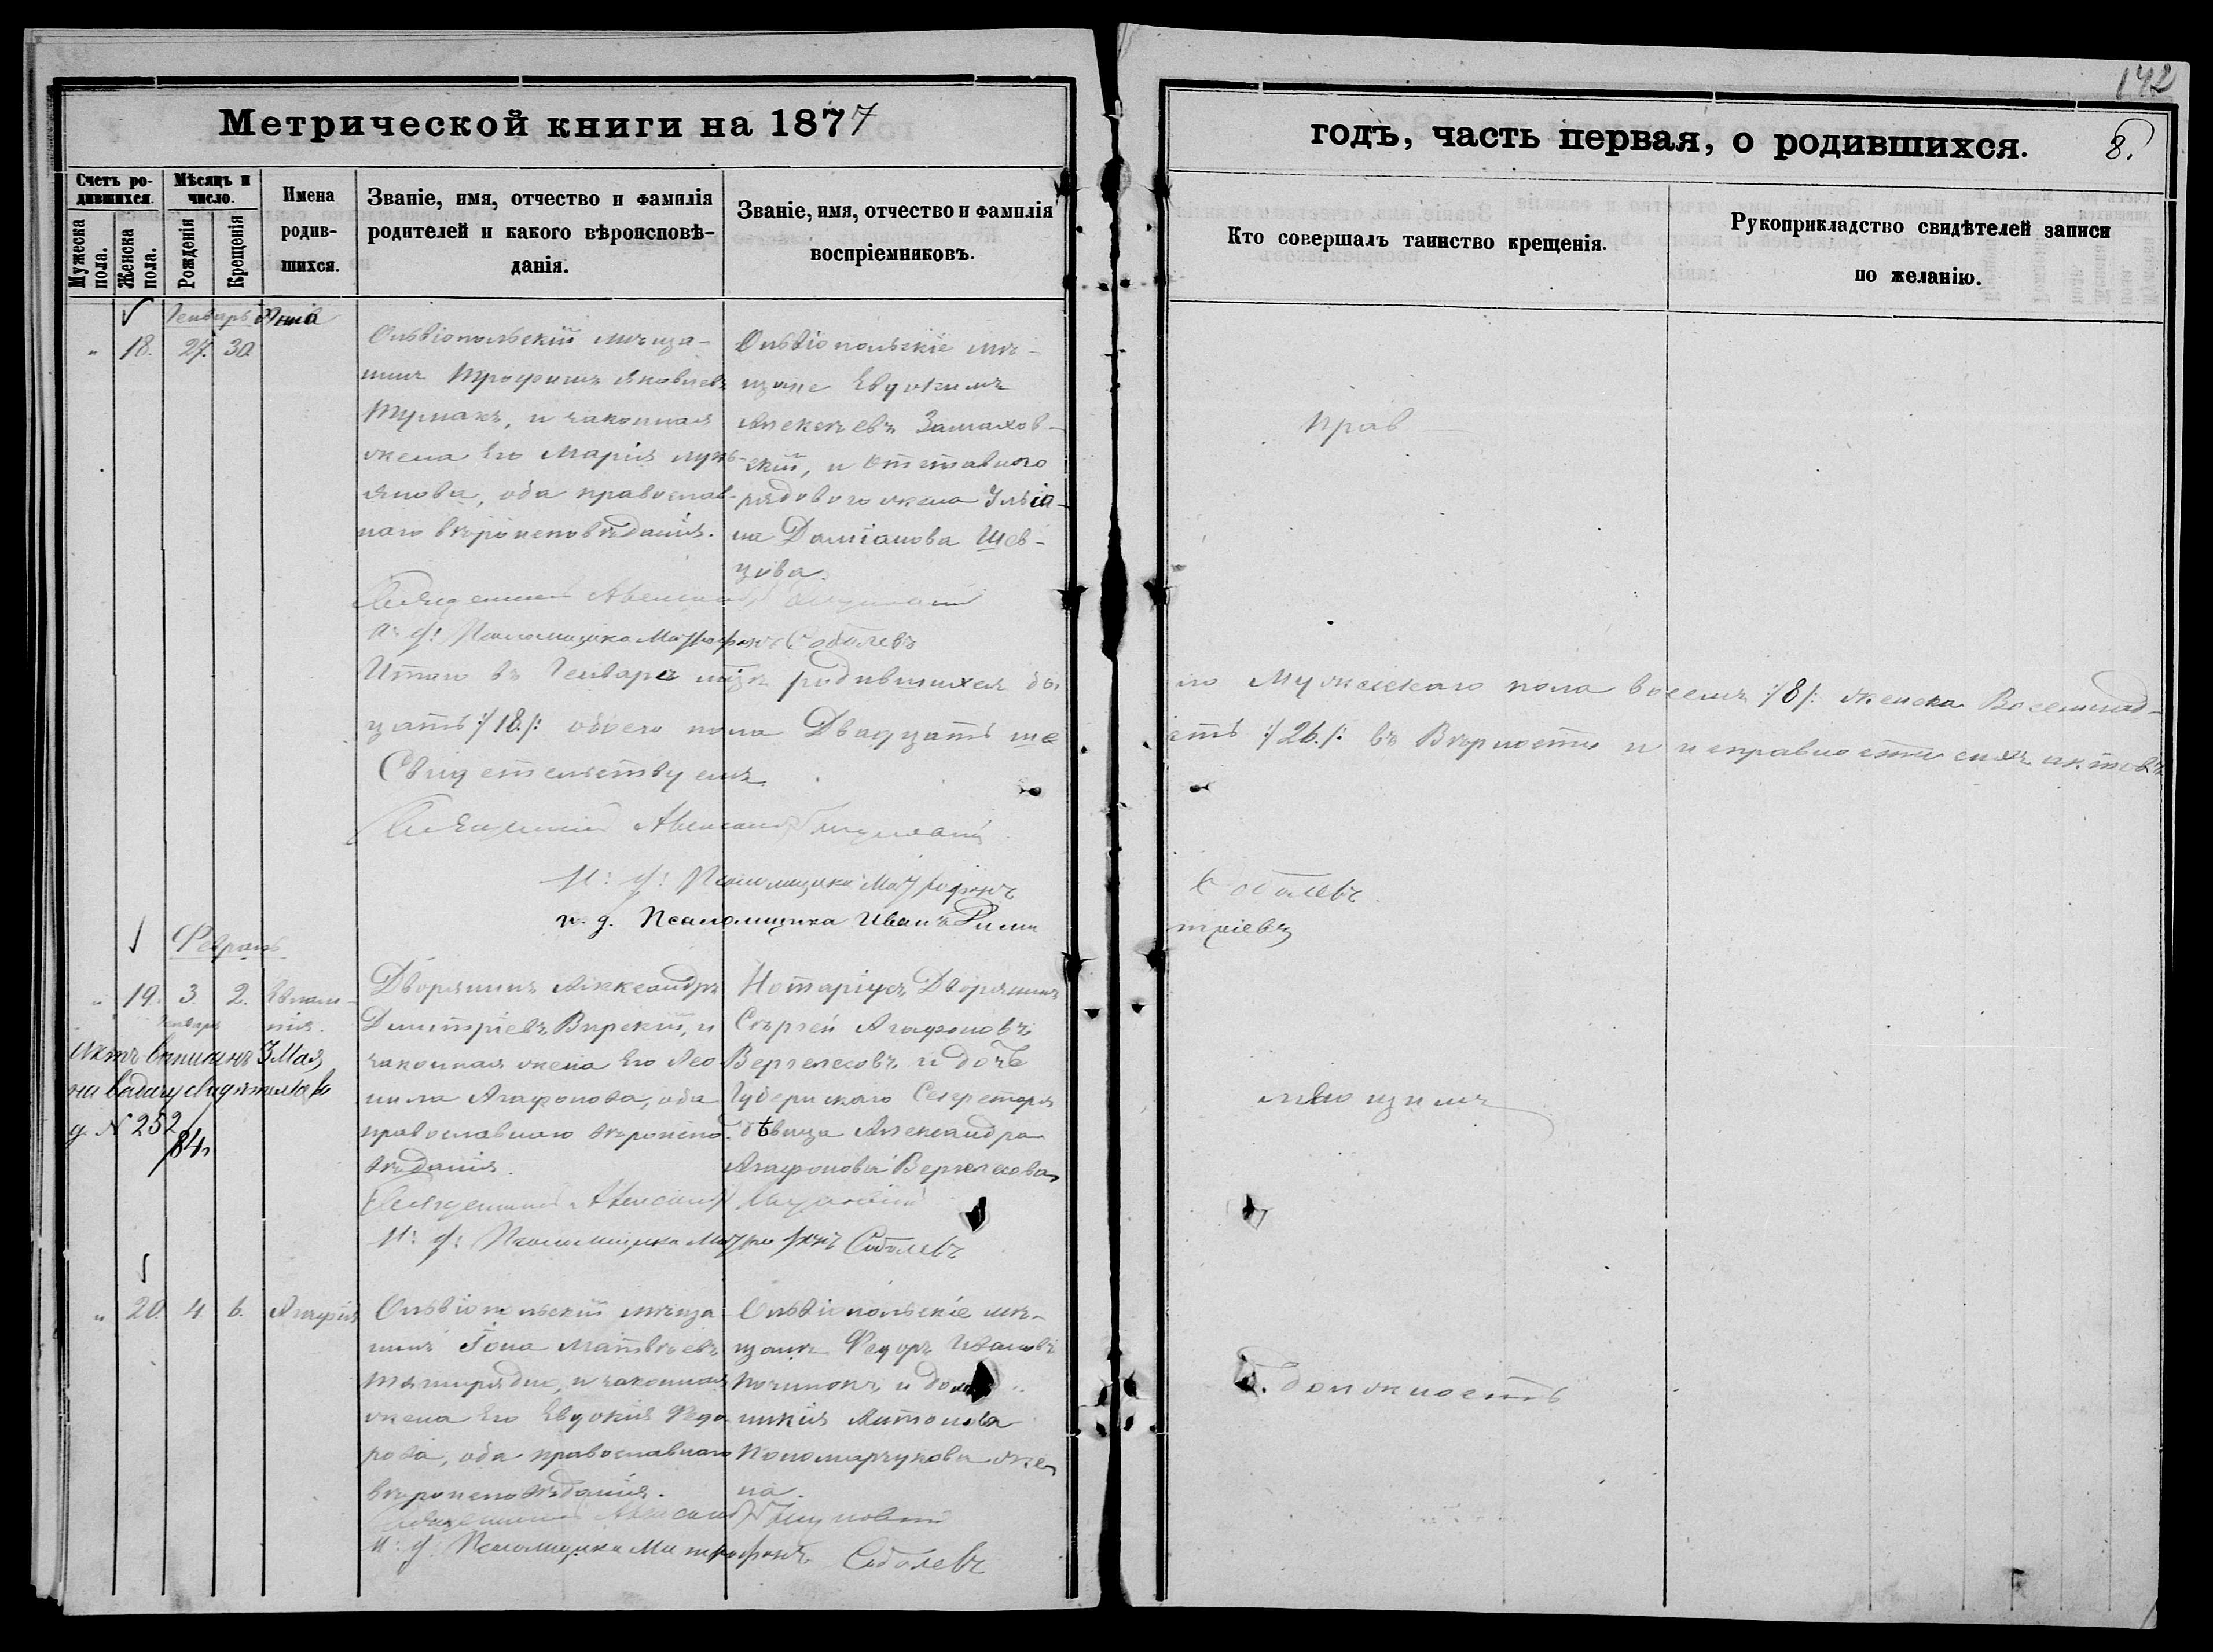 142
Метрической книги на 1877
годъ, часть первая, о родившихся.
8.
Счетъ родившихся.
Мужеска пола.
Женска пола.
Мѣсяцъ и число.
Рожденія
Крещенія
Имена родившихся.
Званіе, имя, отчество и фамилія родителей и какого вѣроисповѣданія.
Званіе, имя, отчество и фамилія воспріемниковъ.
Кто совершалъ таинство крещенія.
Рукоприкладство свидѣтелей записи по желанію.
Генварь
" 18. 27. 30
Ольвіопольскій мѣща-
нинъ Трофимъ Яковлевъ
Тумакъ, и законная
жена его Марія
оба православ-
наго вѣроисповѣданія.
Ольвіопольскіе мѣ-
щане Евдокимъ
Алексѣевъ
и отставнаго
рядоваго жена Уліа-
на Даміанова Шев-
цова.
прав
Священникъ Александръ
и. д. Псаломщика Митрофанъ Соболевъ
Итого въ Генварѣ м-цѣ родившихся бы
ло Мужескаго пола восемь /:8/: женска Восемнад-
цать /:18/: обоего пола Двадцать ше
сть /:26/: въ вѣрности и исправности сихъ актовъ
Свидетельствуемъ
Священникъ Александръ
И: д: Псаломщика Митрофанъ
Соболевъ
и. д. Псаломщика Иванъ Дими
тріевъ
Февраль
" 19. 3. 2.
Генваря
Евлам-
пія.
Дворянинъ Александръ
Димитріевъ Вирскій, и
законная жена его Лео
нила Агафонова, оба
православнаго вѣроиспо-
вѣданія.
Нотаріусъ Дворянинъ
Сергѣй Агафоновъ
Вергелесовъ и дочь
Губернскаго Секретаря
дѣвица Александра
Агафонова Вергелесова
Актъ выписанъ 3 Мая
на выдачу свидѣтельства
№ 252
84
Священникъ Александръ
И: д: Псаломщика Митрофанъ Соболевъ
" 20. 4 6. Агафія
Ольвіопольскій мѣща-
нинъ Іона Матвѣевъ
и законная
жена его Евдокія Федо
рова, оба православнаго
вѣроисповѣданія.
Ольвіопольскіе мѣ-
Федоръ Ивановъ
Починокъ, и
никія Антонова
Пономарчукова же-
на.
должность
Священникъ Александръ
И: д: Псаломщика Митрофанъ Соболевъ